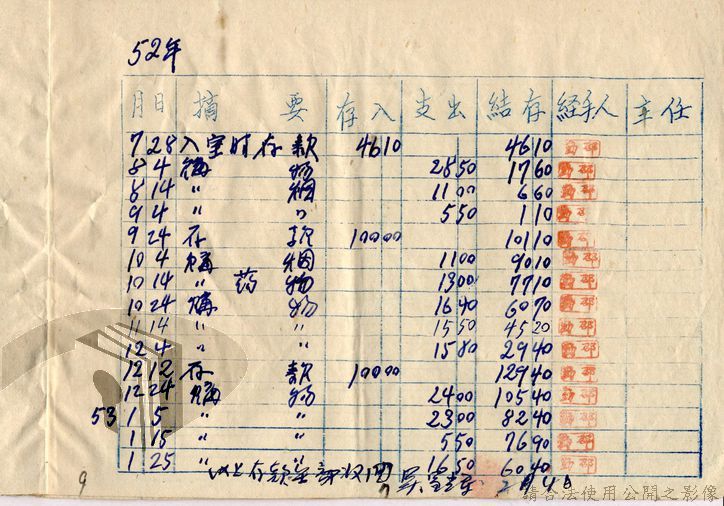 52年
月 日 摘要 存入 支出 結存 経手人 主任
7 28 入室时存款 46 10 46 10
8 4 購物 28 50 17 60
8 14 〃 烟 11 00 6 60
9 4 〃 〃 5 50 1 10
9 24 存款 100 00 101 10
10 4 購烟 11 00 90 10
10 14 〃 药物 13 00 77 10
10 24 購物 16 40 60 70
11 14 〃 〃 15 50 45 20
12 4 〃 〃 15 80 29 40
12 12 存款 100 00 129 40
12 24 購物 24 00 105 40
53 1 5 〃 〃 23 00 82 40
1 15 〃 〃 5 50 76 90
1 25 〃 〃 16 50 60 40
以上存款全部收回 2月4日
9
請合法使用公開之影像